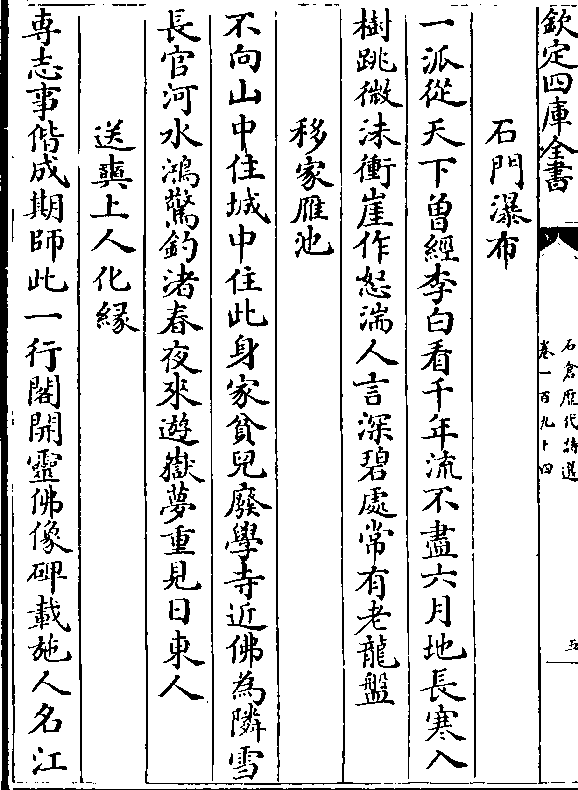 欽定四庫全書
石倉歷代詩選
卷一百九十四
五
石門瀑布
一派從天下曾經李白看千年流不盡六月地長寒入
樹跳微沫衝崖作怒湍人言深碧處常有老龍盤
移家雁池
不向山中住城中住此身家貧兒廢學寺近佛為隣雪
長官河水鴻驚釣渚春夜來遊嶽夢重見日東人
送奭上人化緣
専志事偕成期師此一行閣開靈佛像碑載施人名江